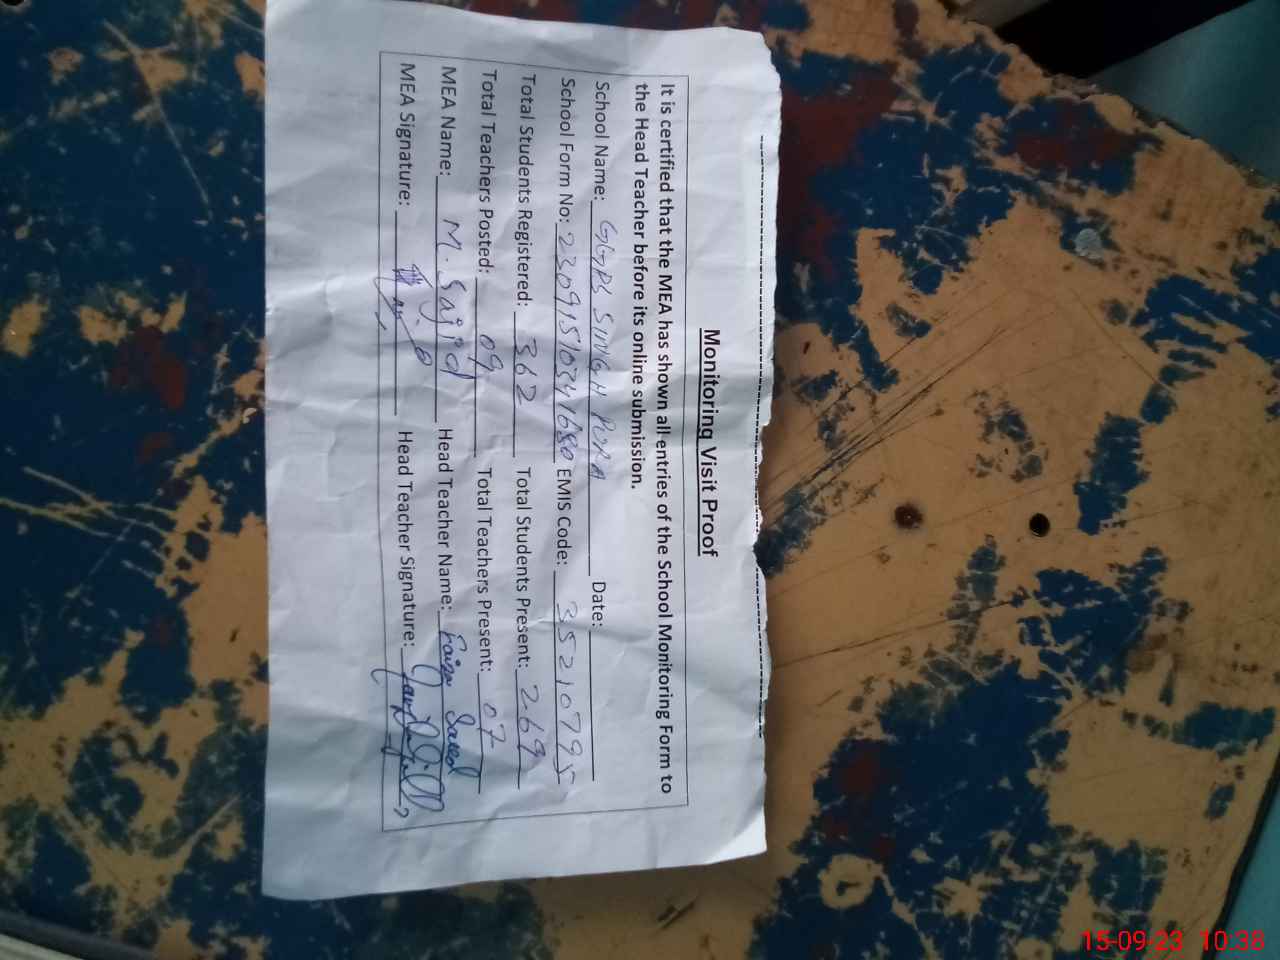 Monitoring Visit Proof
It is certified that the MEA has shown all entries of the School Monitoring Form to
the Head Teacher before its online submission.
School Name: GGPS SINGH PURA Date:
School Form No: 23091510341680 EMIS Code: 35210795
Total Students Registered: 362 Total Students Present: 269
Total Teachers Posted: 09 Total Teachers Present: 07
MEA Name: M. Sajid Head Teacher Name: Faiza Saeed
MEA Signature: Head Teacher Signature:
15-09-23 10:38